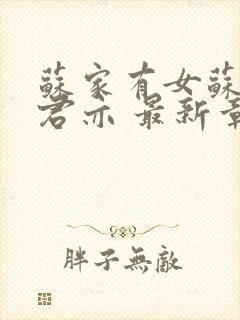 蘇家有女蘇
君亦 最新章
胖子無敵